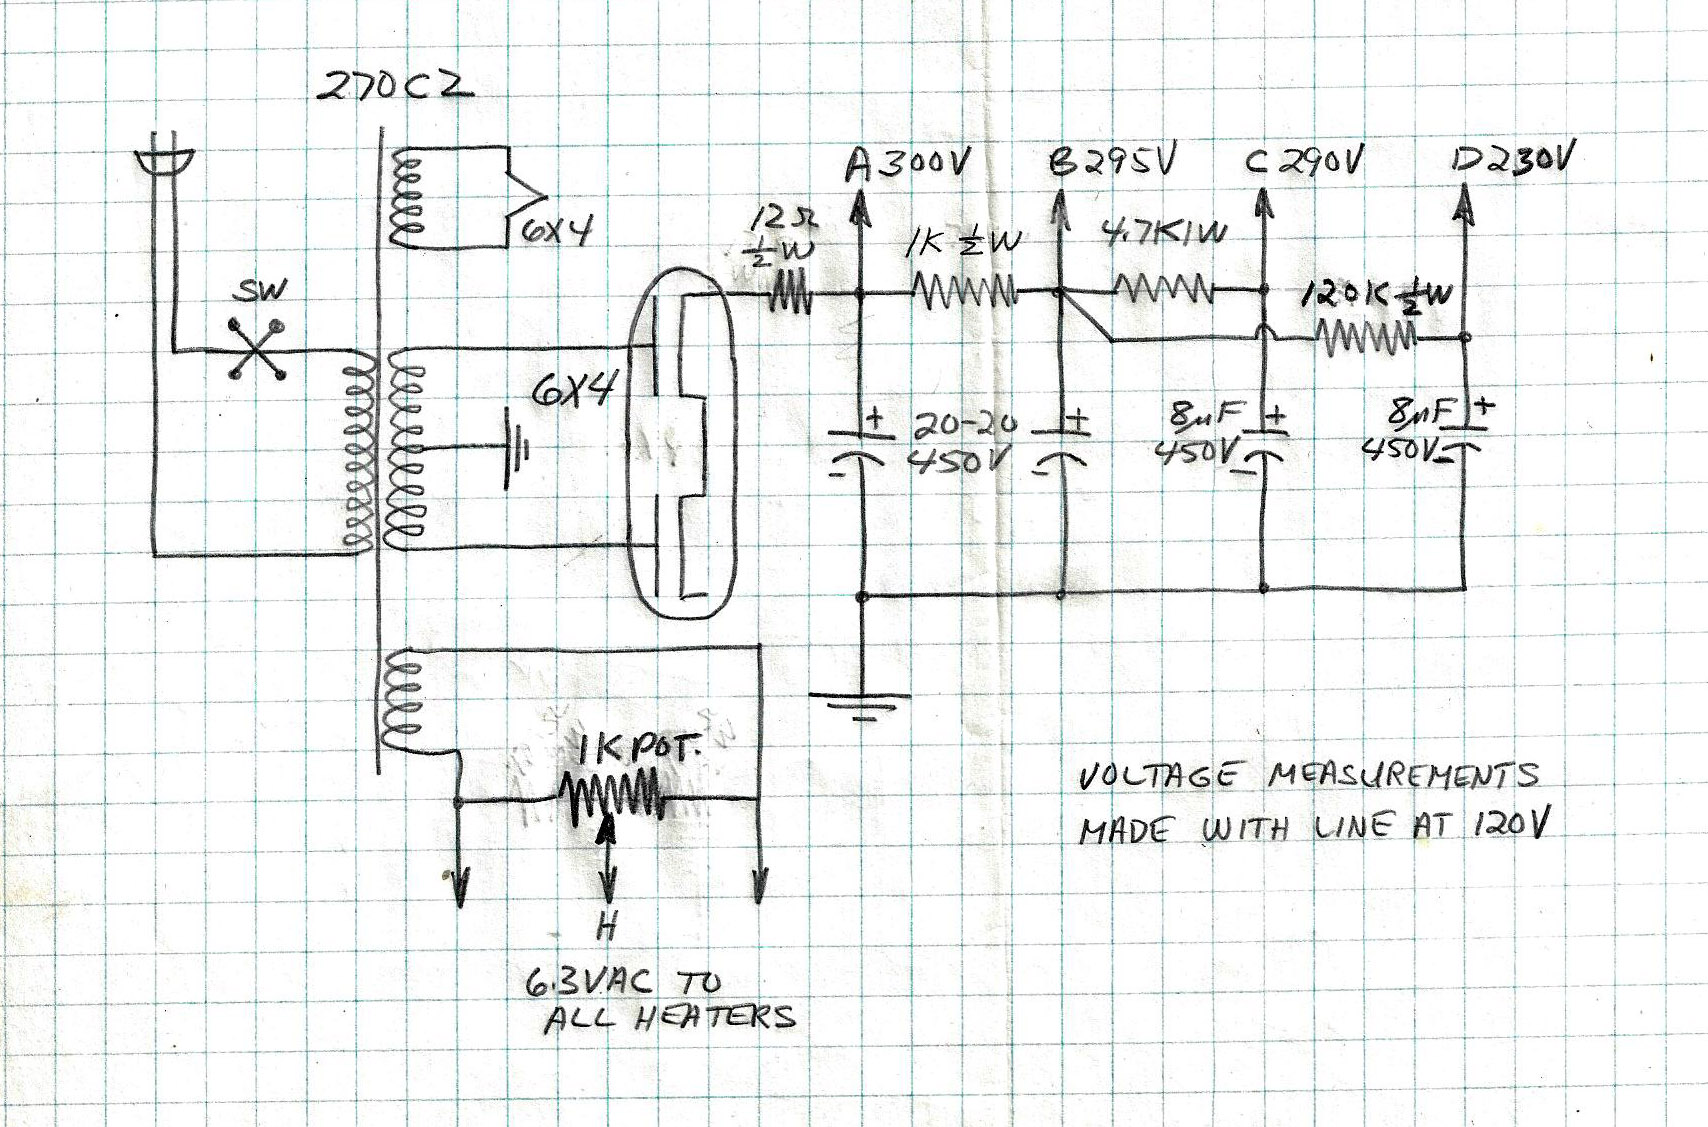 270CZ
A 300V
B 295V
C 290V
D 230V
12Ω
½W
1K ½W
4.7K 1W
120K ½W
6X4
SW
6X4
+
20-20
450V
-
+
-
8µF
450V
+
-
8µF
450V
+
-
1K POT.
H
6.3VAC TO
ALL HEATERS
VOLTAGE MEASUREMENTS
MADE WITH LINE AT 120V